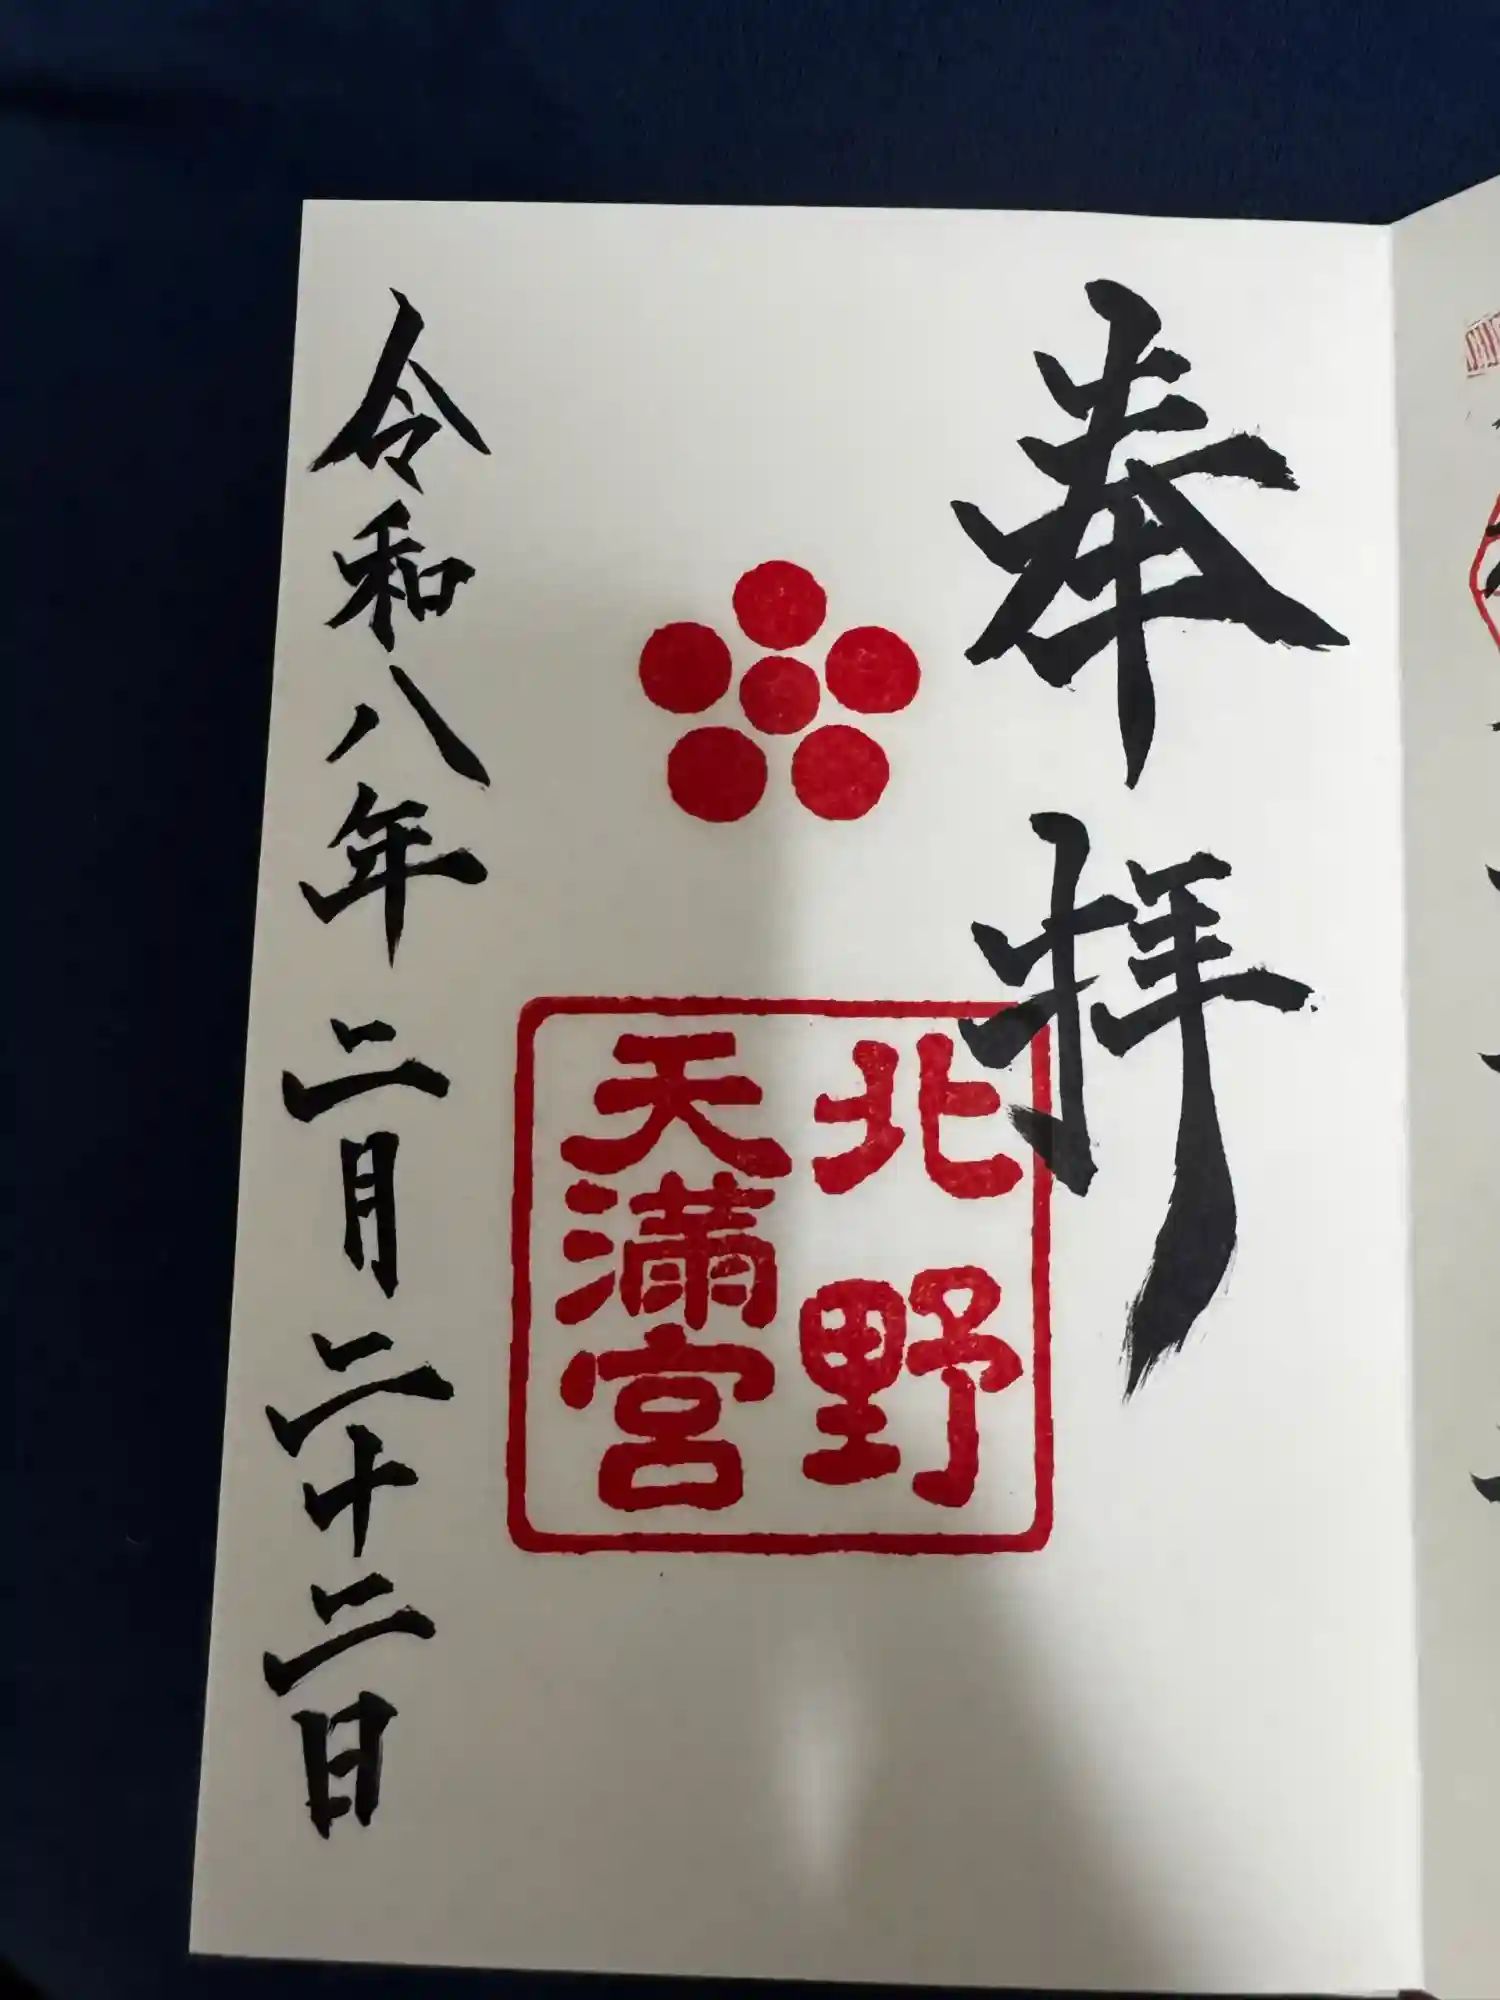 奉拝
北野
天満宮
令和八年二月二十二日